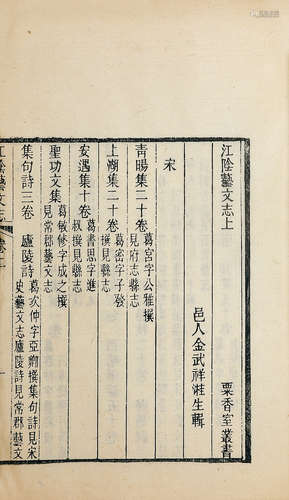 江陰藝文志上
粟香室叢書
邑人金武祥溎生輯
宋
青暘集二十卷
葛宮字公雅撰
見府志縣志
上湖集二十卷
葛密字子發
撰見縣志
安遇集十卷
葛書思字進
叔撰見縣志
聖功文集
葛敏修字成之撰
見常郡藝文志
集句詩三卷
廬陵詩
葛次仲字亞卿撰集句詩見宋
史藝文志廬陵詩見常郡藝文
江陰藝文志
卷上